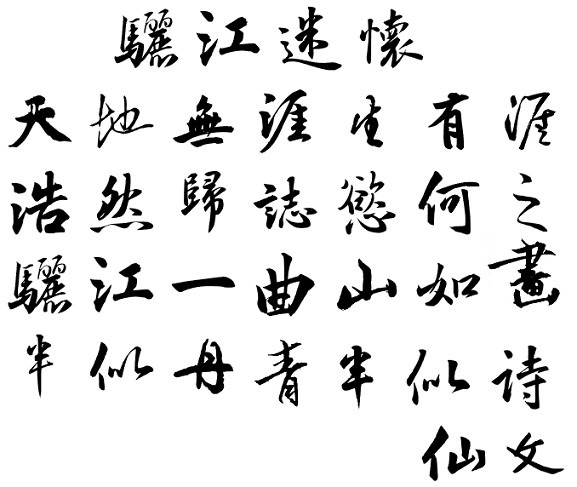 驪江迷懷
天地無涯生有涯
浩然歸誌慾何之
驪江一曲山如畫
半似丹青半似詩
仙文